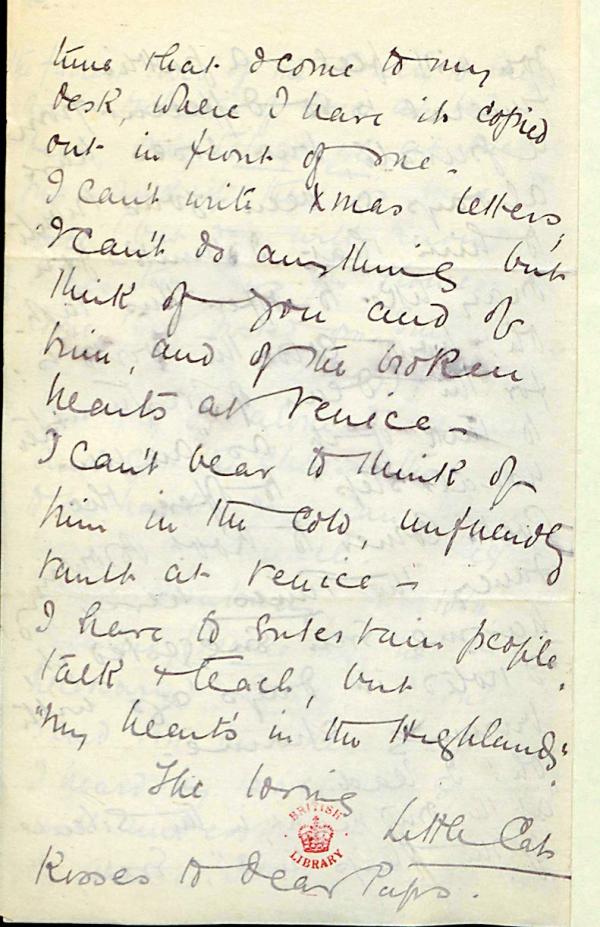 time that I come to my
desk, where I have it copied
out in front of me.
I can't write Xmas letters,
I can't do anything but
think of you and of
him, and of the broken
hearts at Venice –
I can't bear to think of
him in the cold, unfriendly
vault at Venice –
I have to entertain people,
talk & teach, but
"my heart's in the Highlands".
The loving
Little Cat
BRITISH
LIBRARY
Kisses to dear Papa.